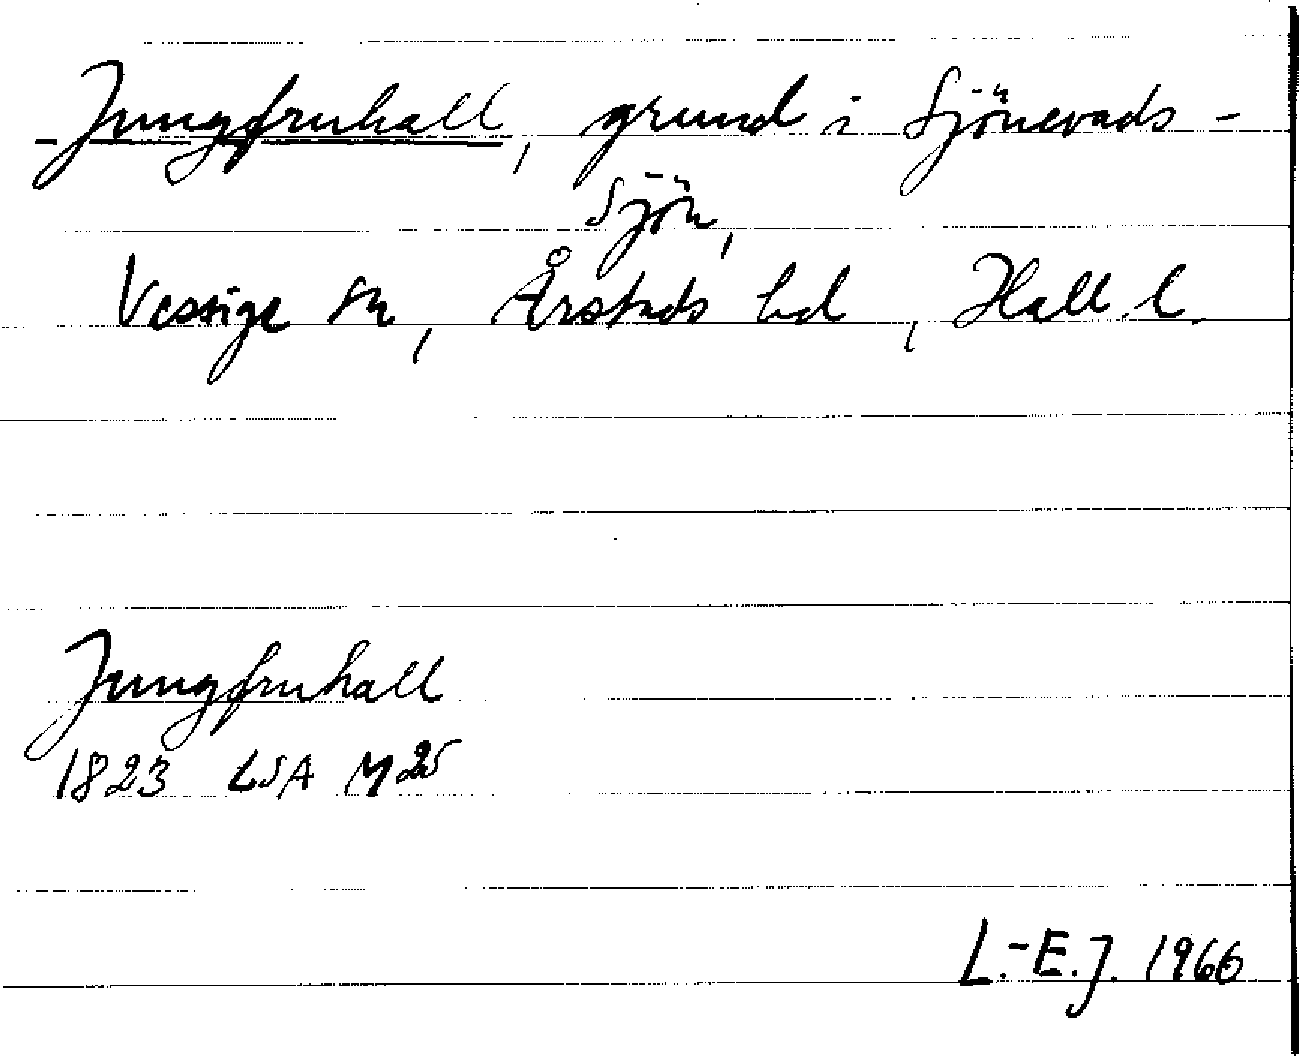 Jungfruhall, grund i Sjönevads-
sjön,
Vessige sn, Årstads hd, Hall. l.
Jungfruhall
1823 LSA M25
L.-E.J. 1966